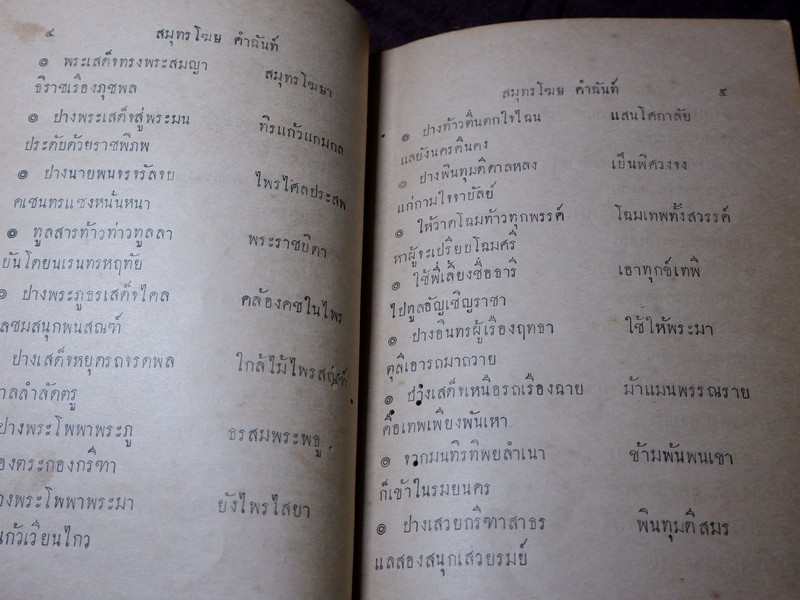 ๔ สมุทรโฆษ คำฉันท์
๏ พระเสด็จทรงพระสมญา สมุทรโฆษา
ธิราชเรืองภุชพล
๏ ปางพระเสด็จสู่พระมน ทิรแก้วแกมกล
ประดับด้วยราชพิภพ
๏ ปางนายพนจรจรัลจบ ไพรไศลประสพ
คเชนทรแซงหนั่นหนา
๏ ทูลสารท้าวท่าวทูลลา พระราชบิดา
ยันโดยนเรนทรหฤทัย
๏ ปางพระภูธรเสด็จไคล คล้องคชในไพร
ลชมสนุกพนสณฑ์
ปางเสด็จหยุดรถจรดพล ใกล้ไม้ไพรสณฑ์
าลลำลัดตรู
ปางพระโพพาพระภู ธรสมพระพธู
องตระกองกรีฑา
างพระโพพาพระมา ยังไพรไสยา
นแก้วเวียนไกว
สมุทรโฆษ คำฉันท์ ๕
๏ ปางท้าวตื่นตกใจไฉน แสนโศกาลัย
แลยังนครคืนคง
๏ ปางพินทุมดีดาลหลง เย็นพิศวงจง
แก่กามใจจาบัลย์
๏ ให้วาดโฉมท้าวทุกพรรค์ โฉมเทพทั้งสวรรค์
หาผู้จะเปรียบโฉมศรี
๏ ใช้พี่เลี้ยงชื่อธารี เอาทุกข์เทพี
ไปทูลอัญเชิญราชา
๏ ปางอินทรผู้เรืองฤทธา ใช้ให้พระมา
ตุลีเอารถมาถวาย
๏ ปางเสด็จเหนือรถเรืองฉาย ม้าแมนพรรณราย
คือเทพเพียงพันเหา
๏ จากมนทิรทิพยลำเนา ข้ามพันพนเขา
ก็เข้าในรมยนคร
๏ ปางเสวยกรีฑาสาธร พินทุมดีสมร
แลสองสนุกเสวยรมย์